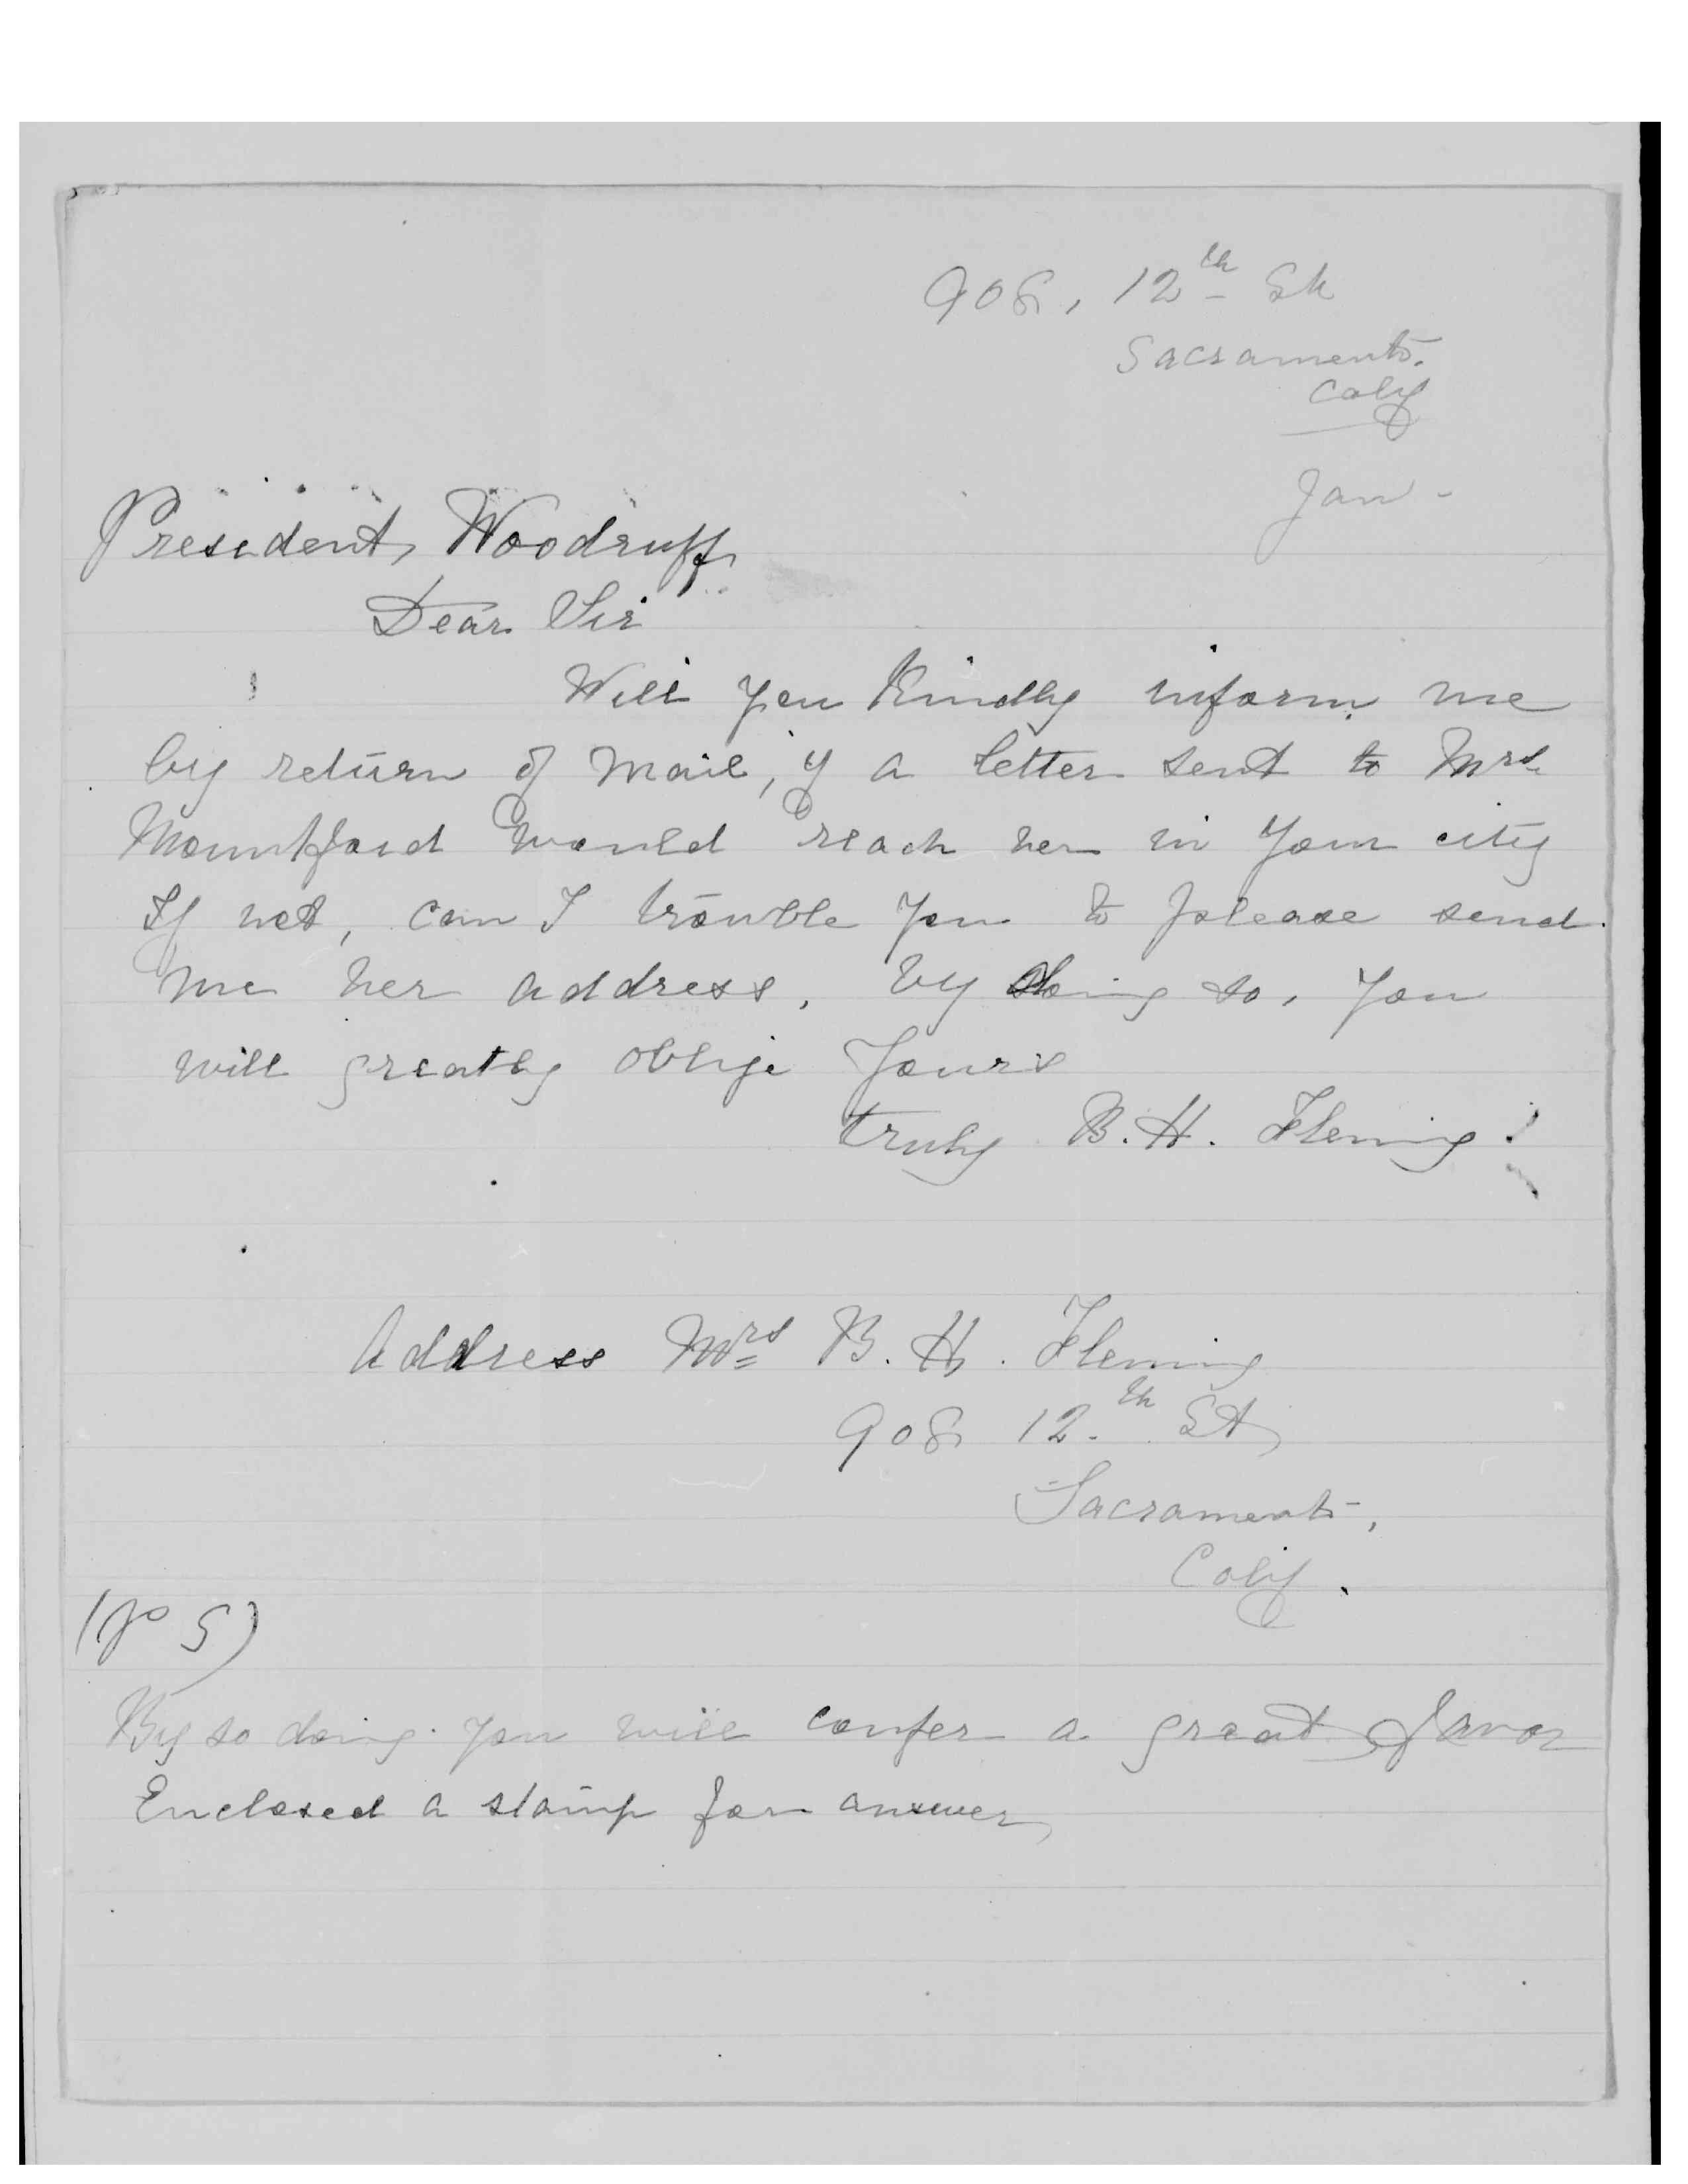 908, 12th St
Sacramento.
Calif
Jan -
President, Woodruff
Dear Sir
Will you Kindly inform me
by return of mail, if a letter sent to Mrs.
Mountford would reach her in Your city
If not, can I trouble You to please send
me her address, by doing so, You
will greatly oblige Yours
truly B. H. Fleming
Address Mrs B. H. Fleming
908 12.th St
Sacramento,
Calif.
(P S)
By so doing you will confer a great favor
Enclosed a stamp for answer